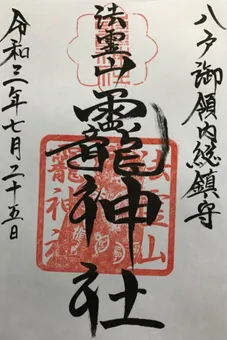 八戸御領内総鎮守
法霊山
龗神社
法霊山
龗神社
令和三年七月二十五日